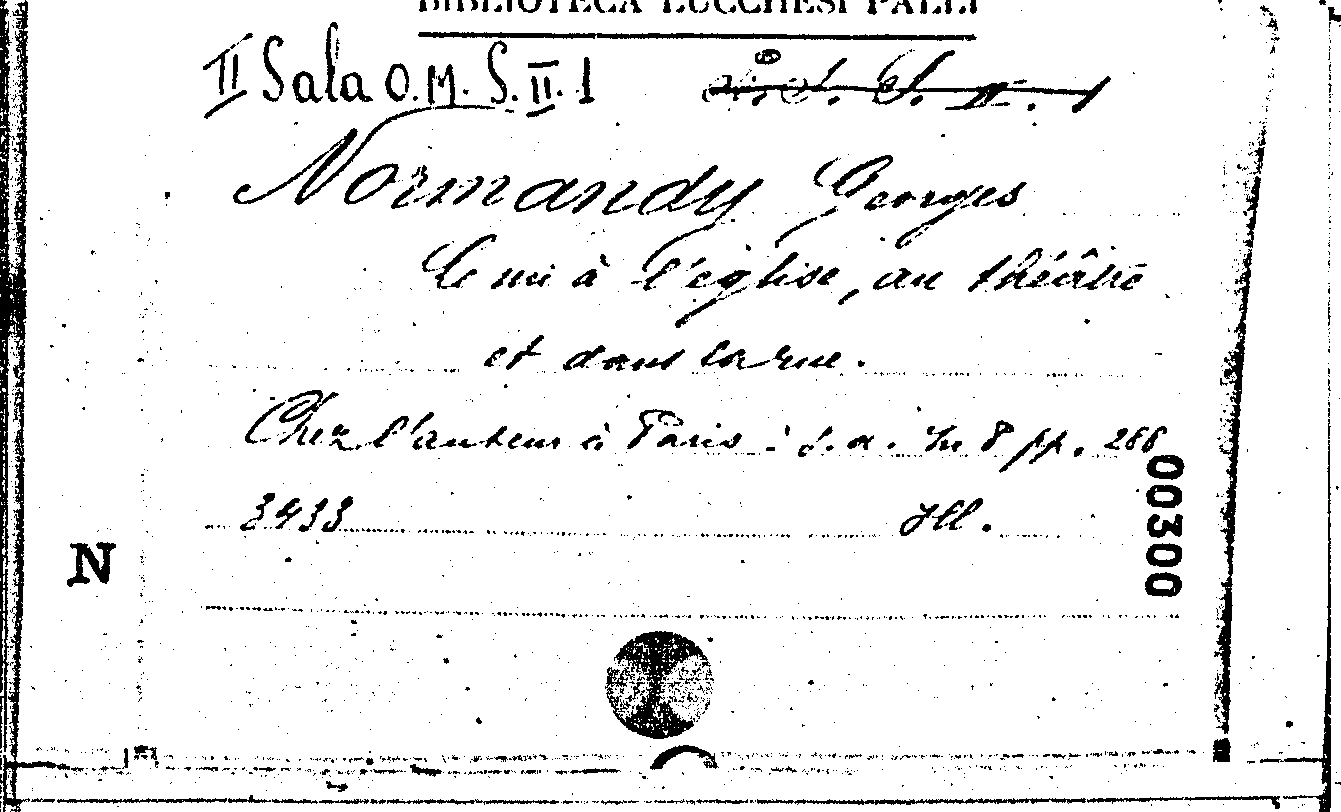 BIBLIOTECA LUCCHESI PALLI
II Sala O.M. S. II. 1
S. II. 1
Normandy Georges
Le nu à l'église, au théâtre
et dans la rue.
Chez l'auteur à Paris: s. a. In 8 pp. 266
3433 Ill.
00300
N